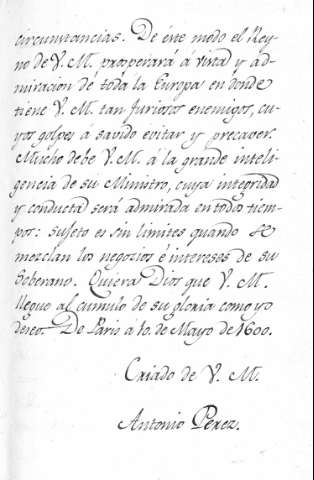 circunstancias. De éste modo el Rey-
no de V. M. prosperará á vista y ad-
miracion de toda la Europa en donde
tiene V. M. tan furiosos enemigos, cu-
yos golpes á savido evitar y precaver.
Mucho debe V. M. á la grande inteli-
gencia de su Ministro, cuya integridad
y conducta será admirada en todos tiem-
pos: sujeto es sin limites quando se
mezclan los negozios é intereses de su
Soberano. Quiera Dios que V. M.
llegue al cumulo de su gloria como yo
deseo. De Paris á 10. de Mayo de 1600.
Criado de V. M.
Antonio Perez.